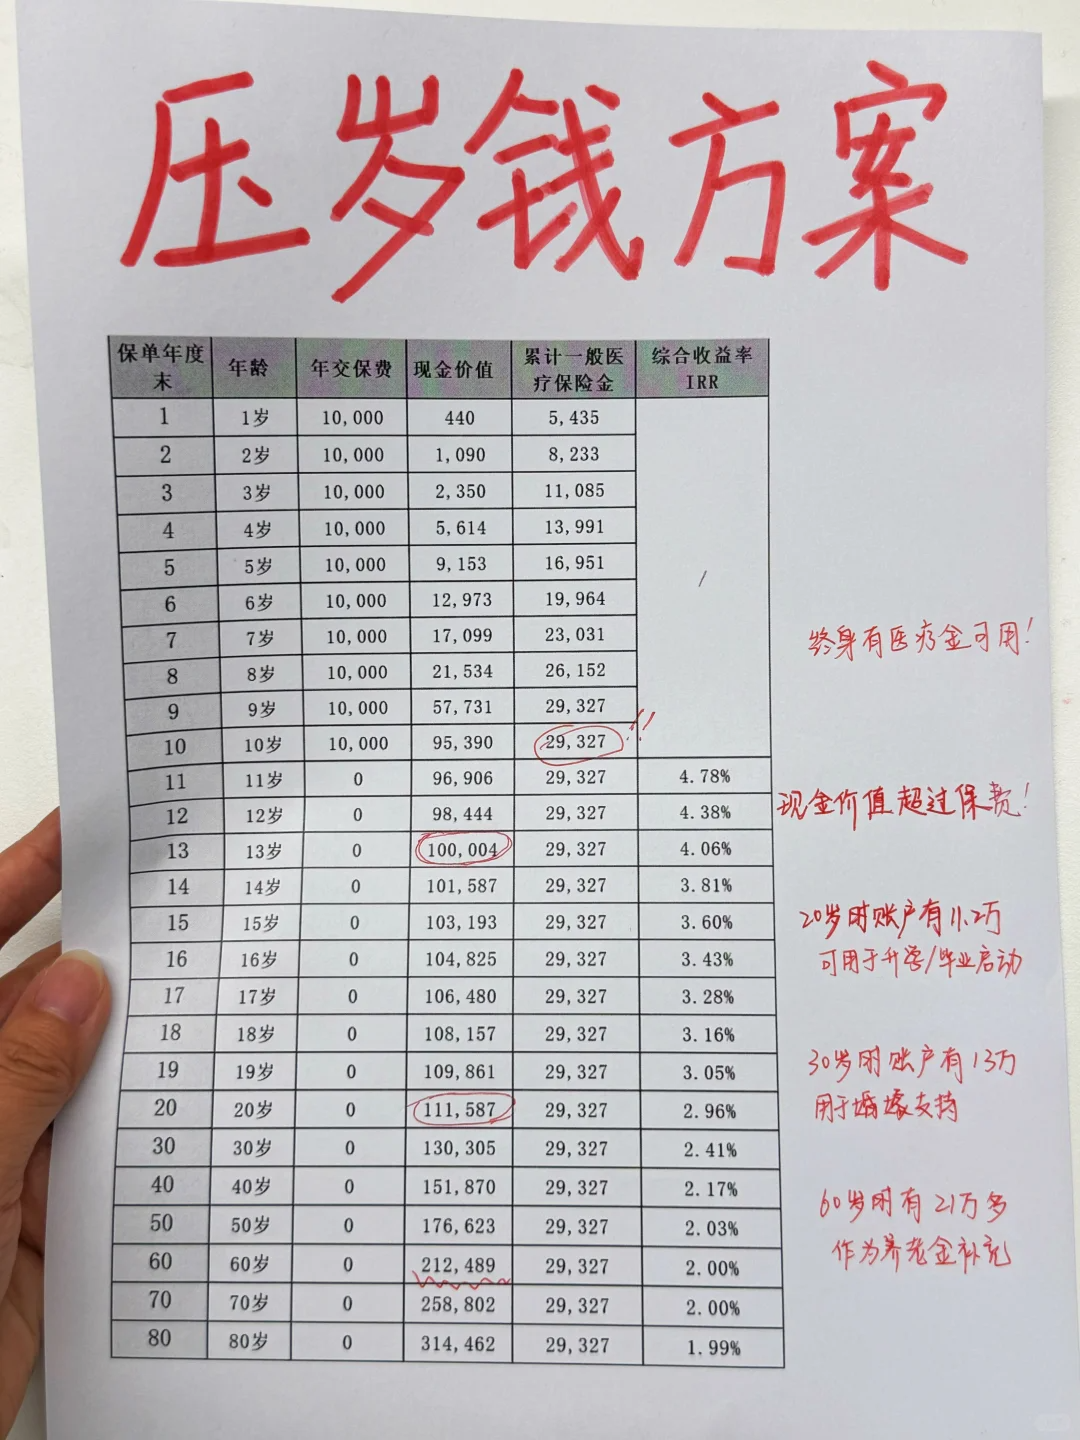 压岁钱方案
保单年度末 年龄 年交保费 现金价值 累计一般医疗保险金 综合收益率IRR
1 1岁 10,000 440 5,435 /
2 2岁 10,000 1,090 8,233
3 3岁 10,000 2,350 11,085
4 4岁 10,000 5,614 13,991
5 5岁 10,000 9,153 16,951
6 6岁 10,000 12,973 19,964
7 7岁 10,000 17,099 23,031
8 8岁 10,000 21,534 26,152
9 9岁 10,000 57,731 29,327
10 10岁 10,000 95,390 29,327 !!
11 11岁 0 96,906 29,327 4.78%
12 12岁 0 98,444 29,327 4.38%
13 13岁 0 100,004 29,327 4.06%
14 14岁 0 101,587 29,327 3.81%
15 15岁 0 103,193 29,327 3.60%
16 16岁 0 104,825 29,327 3.43%
17 17岁 0 106,480 29,327 3.28%
18 18岁 0 108,157 29,327 3.16%
19 19岁 0 109,861 29,327 3.05%
20 20岁 0 111,587 29,327 2.96%
30 30岁 0 130,305 29,327 2.41%
40 40岁 0 151,870 29,327 2.17%
50 50岁 0 176,623 29,327 2.03%
60 60岁 0 212,489 29,327 2.00%
70 70岁 0 258,802 29,327 2.00%
80 80岁 0 314,462 29,327 1.99%
终身有医疗金可用!
现金价值超过保费!
20岁时账户有11.2万
可用于升学/毕业启动
30岁时账户有13万
用于婚嫁支持
60岁时有21万多
作为养老金补充